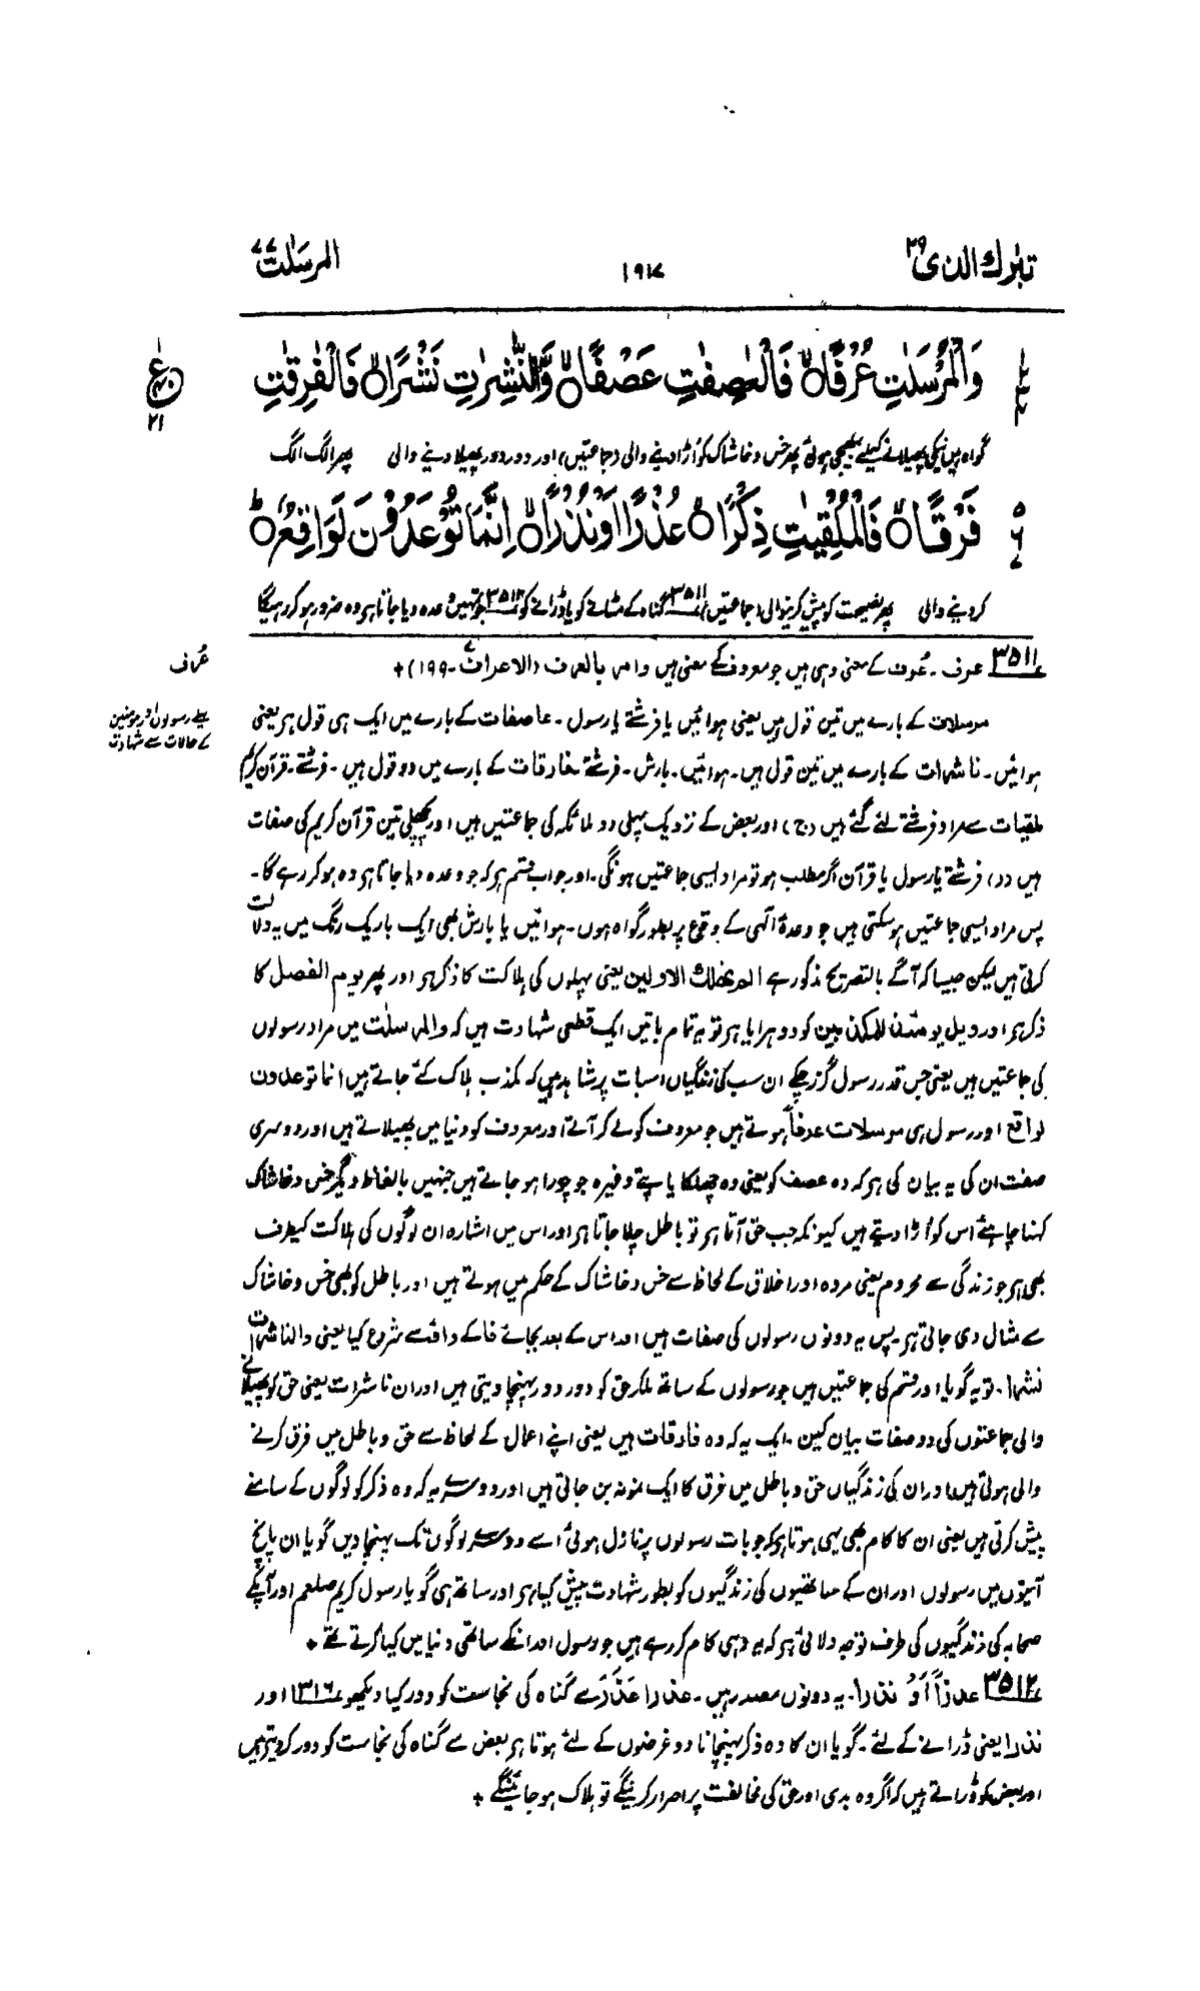 تبٰرك الذی ۲۹ ۱۹۱۷ المرسلٰت ۷۷
وَالْمُرْسَلٰتِ عُرْفًا ۙ فَالْعٰصِفٰتِ عَصْفًا ۙ وَّالنّٰشِرٰتِ نَشْرًا ۙ فَالْفٰرِقٰتِ
گواہ ہیں نیکی پھیلانے کیلئے بھیجی ہوئی پھر خس و خاشاک کو اُڑا دینے والی (جماعتیں) اور دور دور پھیلا دینے والی پھر الگ الگ
فَرْقًا ۙ فَالْمُلْقِيٰتِ ذِكْرًا ۙ عُذْرًا اَوْ نُذْرًا ۙ اِنَّمَا تُوْعَدُوْنَ لَوَاقِعٌ ؕ
کر دینے والی پھر نصیحت کو پیش کرنیوالی (جماعتیں) ۳۵۱۱ گناہ کے مٹانے کو یا ڈرانے کو ۳۵۱۲ جو تمہیں وعدہ دیا جاتا ہر وہ ضرور ہو کر رہیگا
۳۵۱۱ عرف ۔ عُرف کے معنی وہی ہیں جو معروف کے معنی ہیں وامر بالعرف (الاعراف ۷ ۔ ۱۹۹) +
عُرف
مرسلات کے بارے میں تین قول ہیں یعنی ہوائیں یا فرشتے یا رسول ۔ عاصفات کے بارے میں ایک ہی قول ہر یعنی
پہلے رسولوں اور مومنین
کے حالات سے شہادت
ہوائیں ۔ ناشرات کے بارے میں تین قول ہیں ۔ ہوائیں ۔ بارش ۔ فرشتے فارقات کے بارے میں دو قول ہیں ۔ فرشتے ۔ قرآن کریم
ملقیات سے مراد فرشتے لئے گئے ہیں (ج) اور بعض کے نزدیک پہلی دو ملائکہ کی جماعتیں ہیں اور پچھلی تین قرآن کریم کی صفات
ہیں (ر) فرشتے یا رسول یا قرآن اگر مطلب ہو تو مراد ایسی جماعتیں ہونگی ۔ اور جواب قسم ہر کہ جو وعدہ دیا جاتا ہر وہ ہو کر رہے گا ۔
پس مراد ایسی جماعتیں ہو سکتی ہیں جو وعدۂ الٰہی کے وقوع پر بطور گواہ ہوں ۔ ہوائیں یا بارش بھی ایک باریک رنگ میں یہ دلالت
کرتی ہیں لیکن جیسا کہ آگے بالتصریح مذکور ہے الم نهلك الاولین یعنی پہلوں کی ہلاکت کا ذکر ہر اور پھر یوم الفصل کا
ذکر ہر اور ویل یومئذ للمکذبین کو دوہرایا ہر تو یہ تمام باتیں ایک قطعی شہادت ہیں کہ والمرسلٰت میں مراد رسولوں
کی جماعتیں ہیں یعنی جس قدر رسول گزر چکے ان سب کی زندگیاں اسبات پر شاہد ہیں کہ مکذب ہلاک کئے جاتے ہیں انما توعدون
لواقع اور رسول ہی مرسلات عرفاً ہوتے ہیں جو معروف کو لے کر آتے اور معروف کو دنیا میں پھیلاتے ہیں اور دوسری
صفت ان کی یہ بیان کی ہر کہ وہ عصف کو یعنی وہ چھلکا یا پتے وغیرہ جو چورا ہو جاتے ہیں جنہیں بالفاظ دیگر خس و خاشاک
کہنا چاہئے اس کو اُڑا دیتے ہیں کیونکہ جب حق آتا ہر تو باطل چلا جاتا ہر اور اس میں اشارہ ان لوگوں کی ہلاکت کیطرف
بھی ہر جو زندگی سے محروم یعنی مردہ اور اخلاق کے لحاظ سے خس و خاشاک کے حکم میں ہوتے ہیں اور باطل کو بھی خس و خاشاک
سے مثال دی جاتی ہر پس یہ دونوں رسولوں کی صفات ہیں اور اس کے بعد بجائے فا کے واؤ سے شروع کیا یعنی والناشرات
نشرا ۔ تو یہ گویا اور قسم کی جماعتیں ہیں جو رسولوں کے ساتھ ملکر حق کو دور دور پہنچا دیتی ہیں اور ان ناشرات یعنی حق کو پھیلانے
والی جماعتوں کی دو صفات بیان کیں ۔ ایک یہ کہ وہ فارقات ہیں یعنی اپنے اعمال کے لحاظ سے حق و باطل میں فرق کرنے
والی ہوتی ہیں اور ان کی زندگیاں حق و باطل میں فرق کا ایک نمونہ بن جاتی ہیں اور دوسرے یہ کہ وہ ذکر کو لوگوں کے سامنے
پیش کرتی ہیں یعنی ان کا کام بھی یہی ہوتا ہر کہ جو بات رسولوں پر نازل ہوئی اسے دوسرے لوگوں تک پہنچا دیں گویا ان پانچ
آیتوں میں رسولوں اور ان کے ساتھیوں کی زندگیوں کو بطور شہادت پیش کیا ہر اور ساتھ ہی گویا رسول کریم صلعم اور آپکے
صحابہ کی زندگیوں کی طرف توجہ دلائی ہر کہ یہ وہی کام کر رہے ہیں جو رسول اور انکے ساتھی دنیا میں کیا کرتے تھے +
۳۵۱۲ عذراً اَوْ نذرا ۔ یہ دونوں مصدر ہیں ۔ عذرا عَذَرَ سے گناہ کی نجاست کو دور کیا دیکھو ۱۳۱۶ اور
نذرا یعنی ڈرانے کے لئے ۔ گویا ان کا وہ ذکر پہنچانا دو غرضوں کے لئے ہوتا ہر بعض سے گناہ کی نجاست کو دور کر دیتے ہیں
اور بعض کو ڈراتے ہیں کہ اگر وہ بدی اور حق کی مخالفت پر اصرار کرینگے تو ہلاک ہو جائینگے +